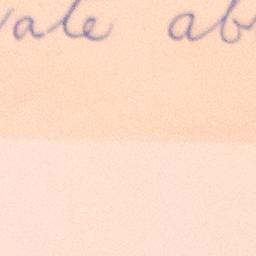 ate ab